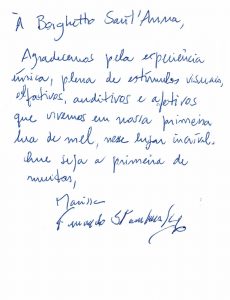 À Borghetto Sant'Anna,
Agradecemos pela experiência
única, plena de estímulos visuais,
olfativos, auditivos e afetivos
que vivemos em nossa primeira
lua de mel, nesse lugar incrível.
Que seja a primeira de
muitas,
Marissa
Fernando